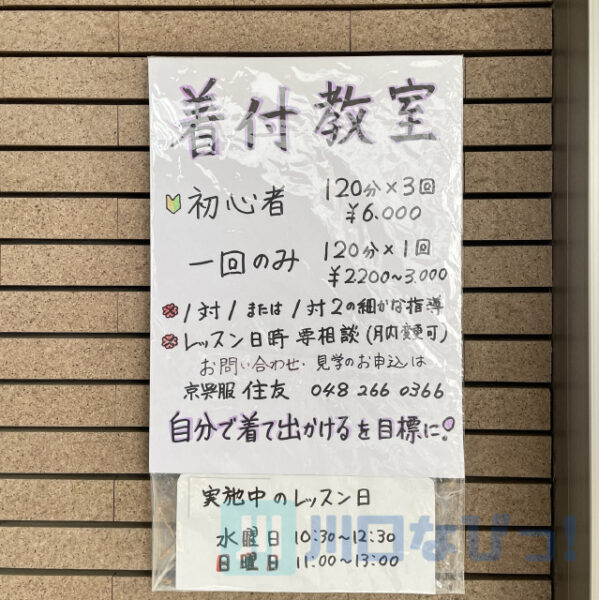 着付教室
初心者 120分×3回
¥6.000
一回のみ 120分×1回
¥2200~3.000
1対1または1対2の細かな指導
レッスン日時 要相談(月内変更可)
お問い合わせ・見学のお申込は
京呉服 住友 048 266 0366
自分で着て出かけるを目標に!
実施中のレッスン日
水曜日 10:30~12:30
日曜日 11:00~13:00
川口なびっ!